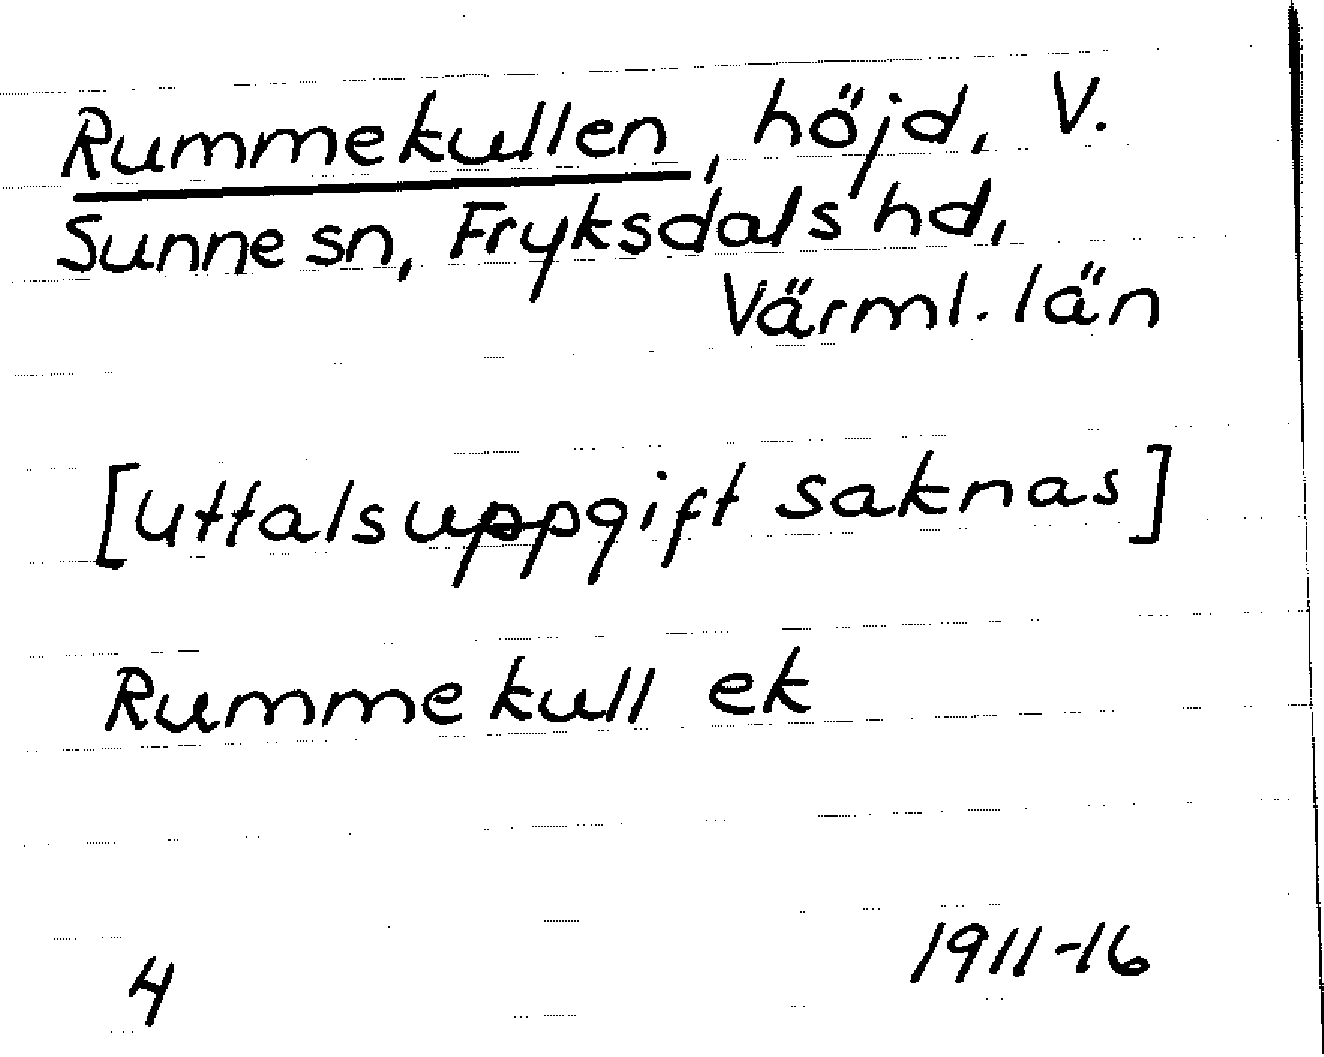 Rummekullen, höjd, V.
Sunne sn, Fryksdals hd,
Värml. län
[Uttalsuppgift saknas]
Rummekull ek
1911-16
4